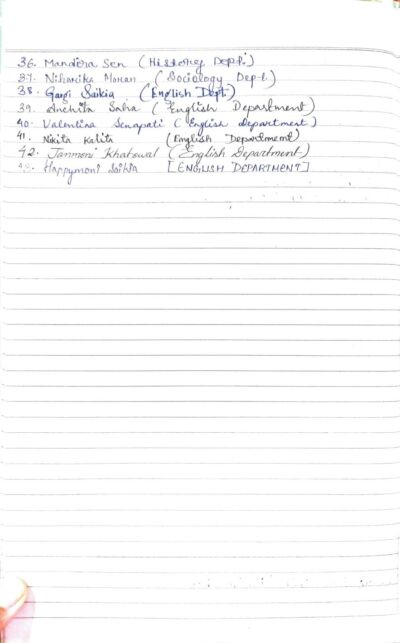 36. Mandira Sen (History Dept.)
37. Niharika Moran (Sociology Dept.)
38. Gargi Saikia (English Dept)
39. Suchita Saha (English Department)
40. Valentina Senapati (English department)
41. Nikita Kalita (English Department)
42. Janmoni Khatowal (English Department)
43. Happymoni Saikia [ENGLISH DEPARTMENT]